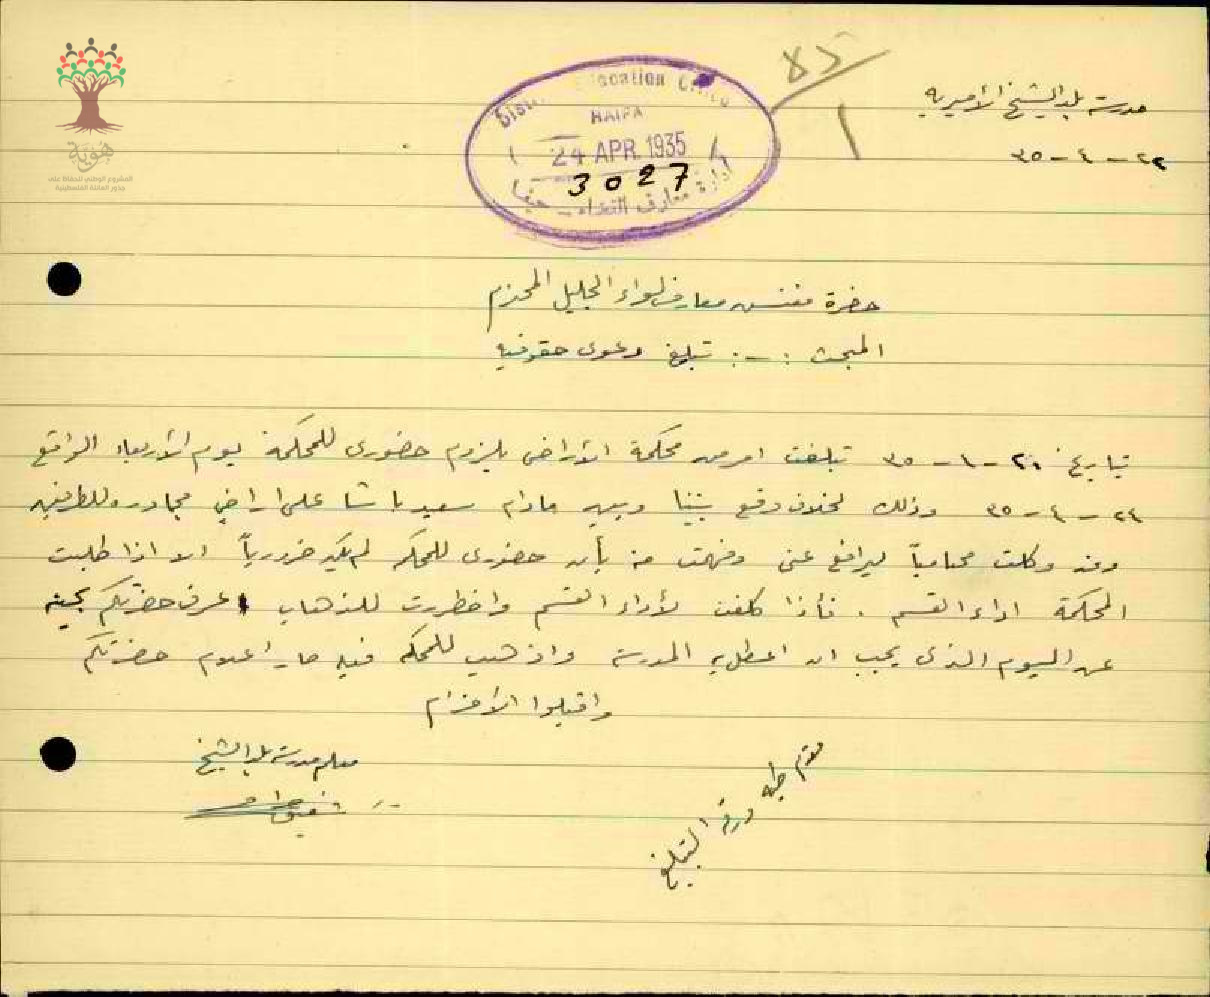 ٨٥
١
مدرسة بلد الشيخ الأميرية
٢٢ - ٤ - ٣٥
District Education Office
HAIFA
24 APR 1935
3027
ادارة معارف القضاء - حيفا
هوية
المشروع الوطني للحفاظ على
جذور العائلة الفلسطينية
حضرة مفتش معارف لواء الجليل المحترم
المبحث :-: تبليغ دعوى حقوقية
بتاريخ ٢٠ - ٤ - ٣٥ تبلغت امر من محكمة الأراضي بلزوم حضوري للمحكمة يوم الأربعاء الواقع
٢٤ - ٤ - ٣٥ وذلك لخلاف وقع بيننا وبين مادام سعيد باشا على اراضي مجاوره للطرفين
وقد وكلت محامياً ليرافع عني وفهمت منه بأن حضوري للمحكمه لم يكن ضرورياً الا اذا طلبت
المحكمة اداء القسم . فأذا كلفت لأداء القسم واضطررت للذهاب اعرف حضرتكم بحينه
عن اليوم الذي يجب ان اعطل به المدرسة واذهب للمحكمه فيه صار اعلام حضرتكم
واقبلوا الاحترام
معلم مدرسة بلد الشيخ
مقدم طيه ورقة التبليغ